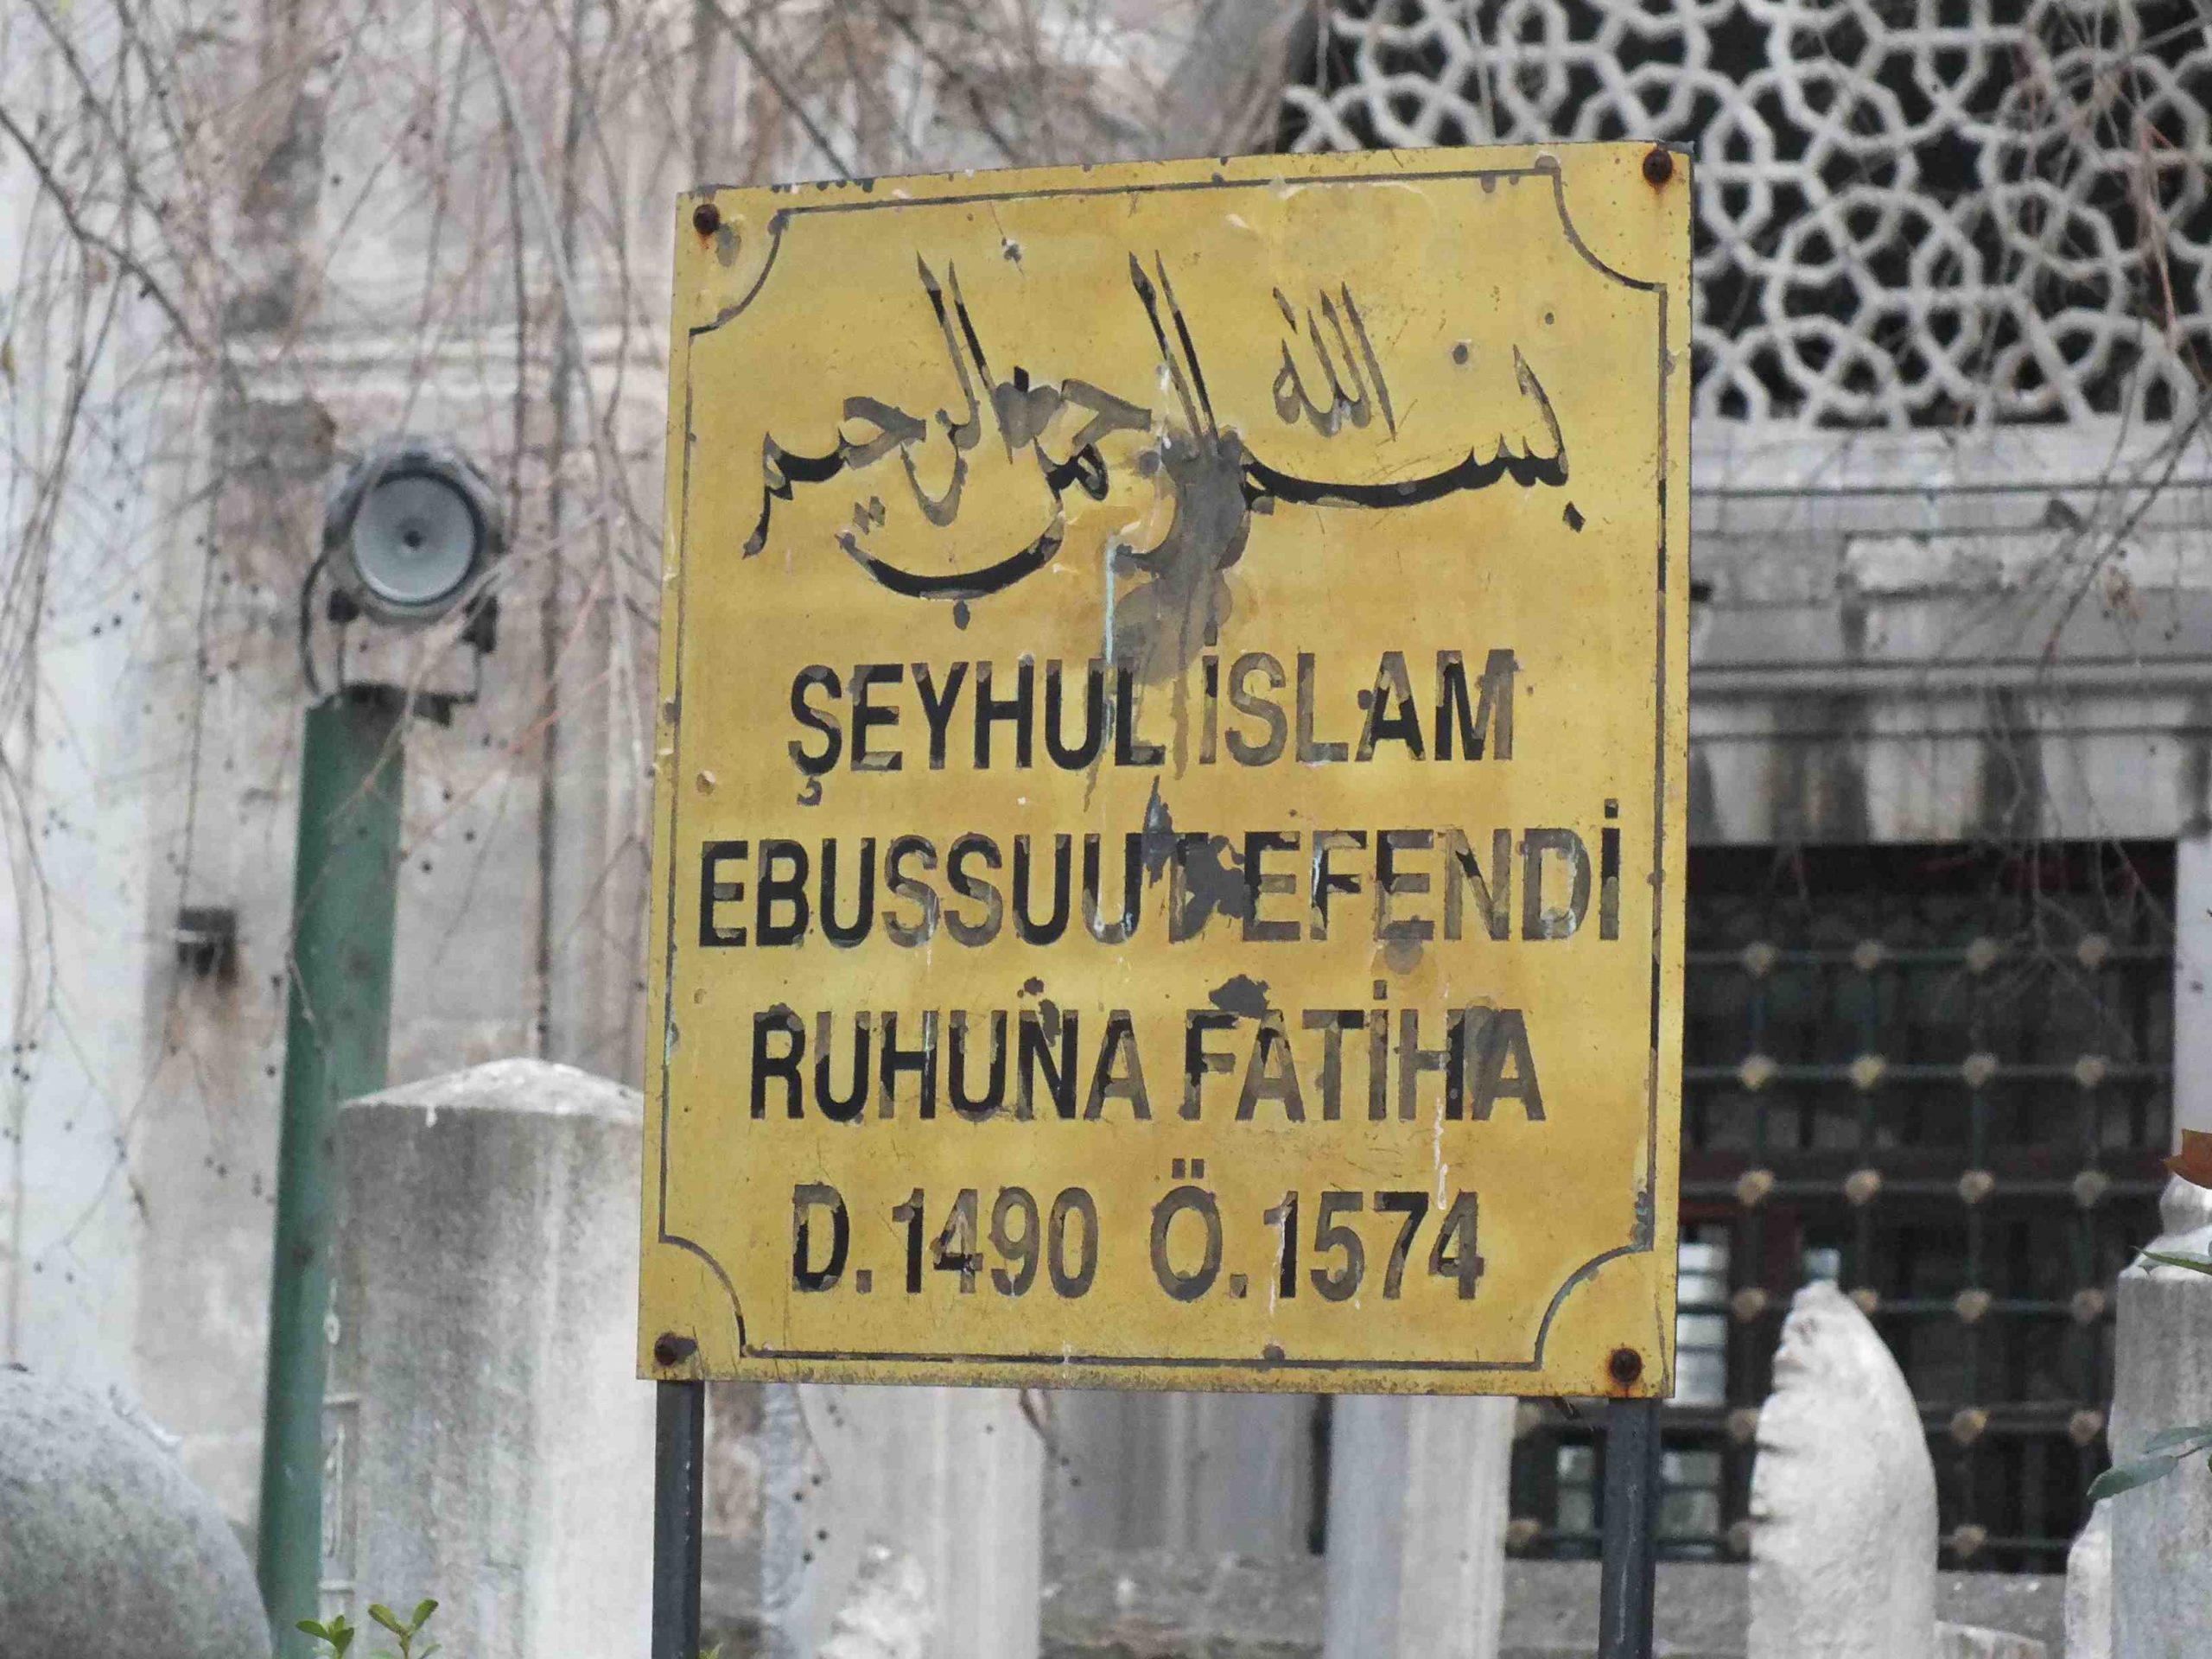 بسم الله الرحمن الرحيم
ŞEYHUL İSLAM
EBUSSUUD EFENDİ
RUHUNA FATİHA
D.1490 Ö.1574